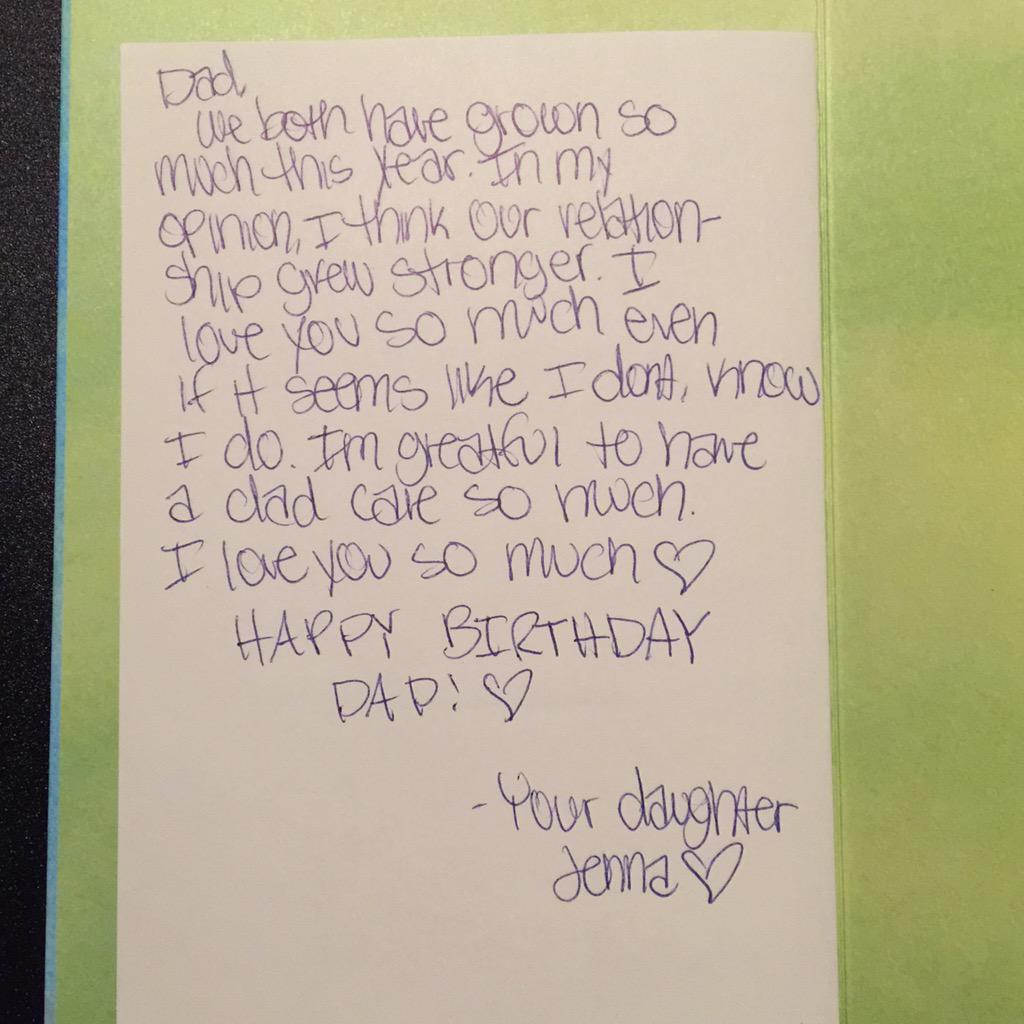 Dad
We both have grown so
much this year. In my
opinion, I think our relation-
ship grew stronger. I
love you so much even
if it seems like I dont, know
I do. I'm greatful to have
a dad care so much.
I love you so much ♡
HAPPY BIRTHDAY
DAD! ♡
- Your daughter
Jenna ♡